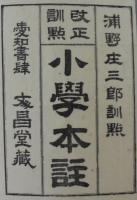 浦野庄三郎訓點
改正
訓點
小學本註
愛知書肆
文昌堂藏